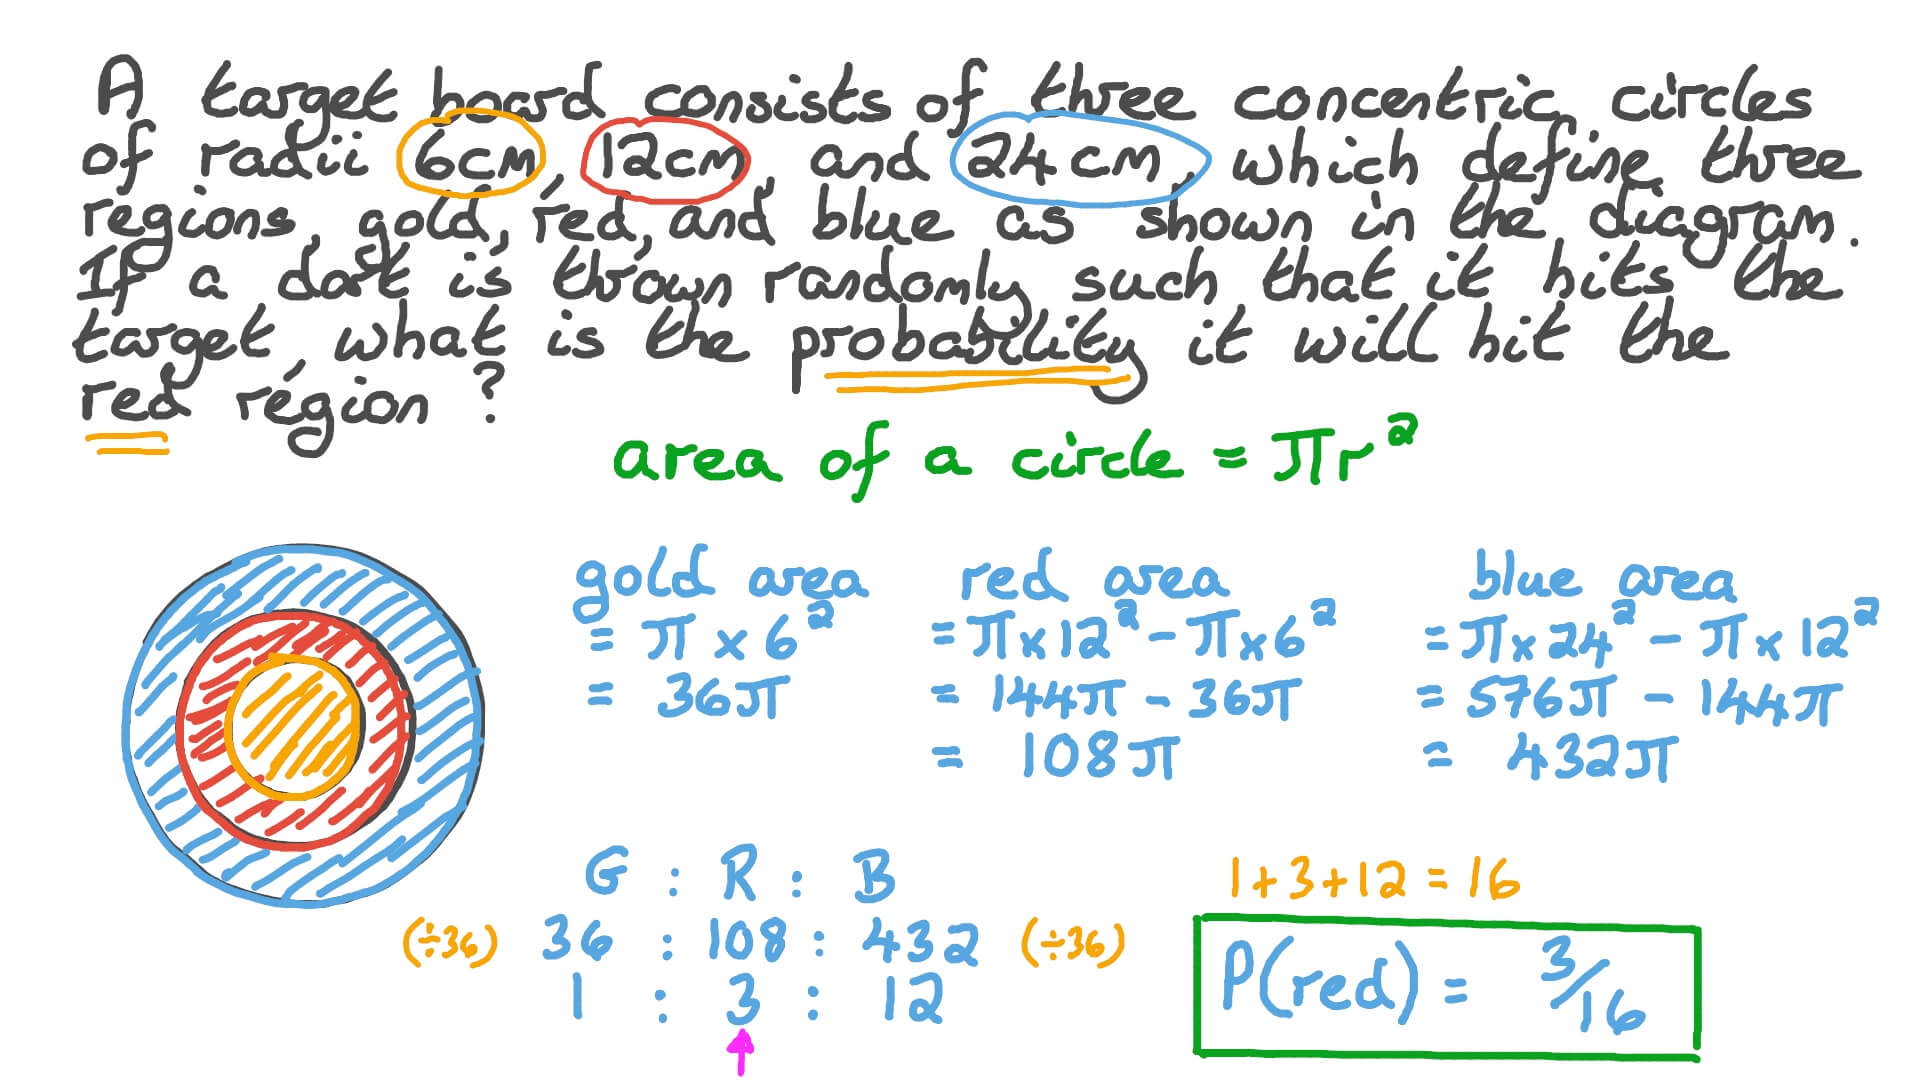 A target board consists of three concentric circles
of radii 6cm, 12cm, and 24cm, which define three
regions, gold, red, and blue as shown in the diagram.
If a dart is thrown randomly such that it hits the
target, what is the probability it will hit the
red region?
area of a circle = πr²
gold area
= π × 6²
= 36π
red area
= π × 12² - π × 6²
= 144π - 36π
= 108π
blue area
= π × 24² - π × 12²
= 576π - 144π
= 432π
G : R : B
(÷36) 36 : 108 : 432 (÷36)
1 : 3 : 12
1+3+12 = 16
P(red) = 3/16